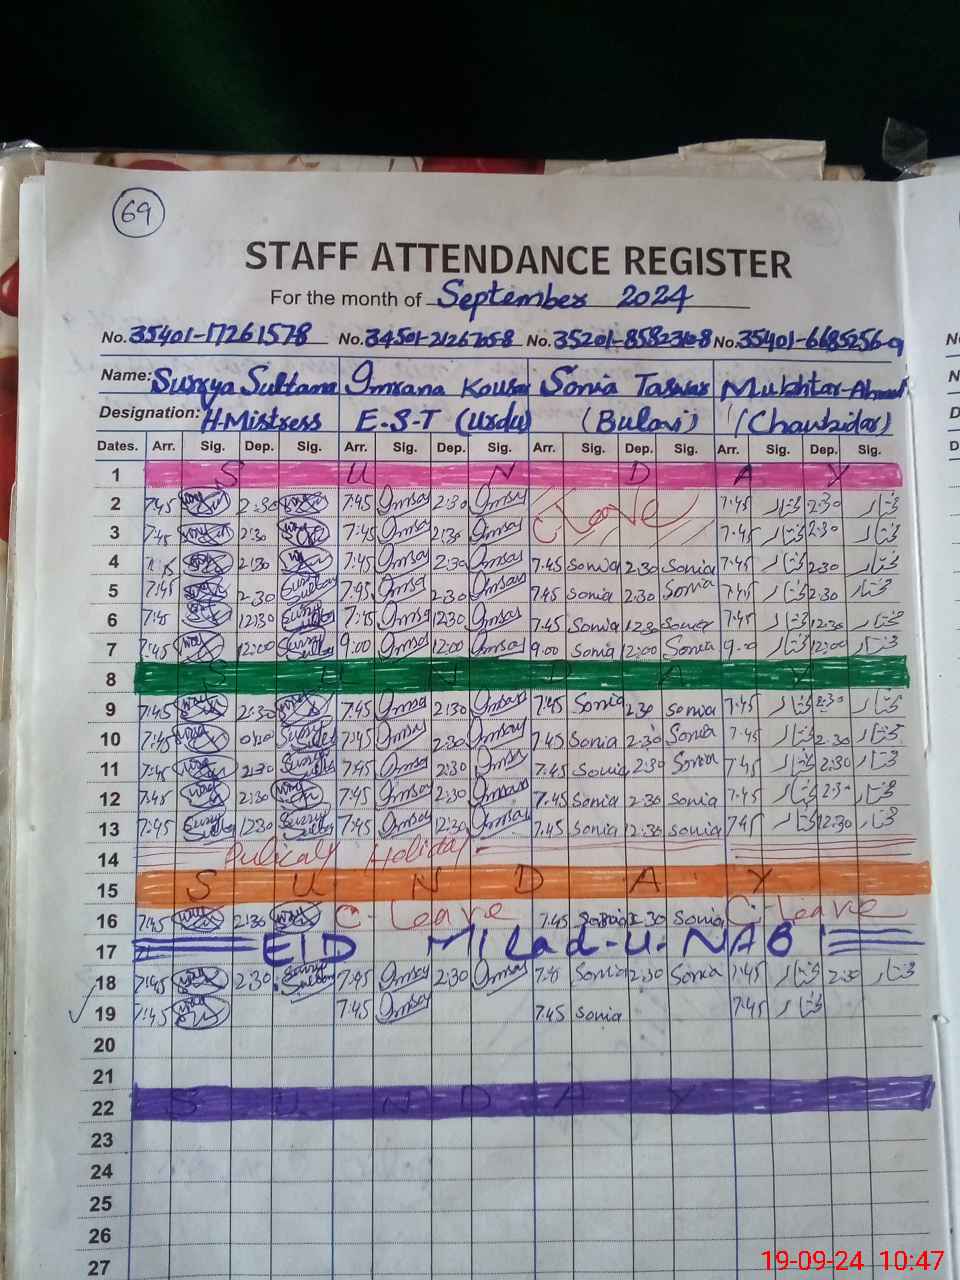 69
STAFF ATTENDANCE REGISTER
For the month of September 2024
No. 35401-1726157-8 No. No. No. 35401-6685256-9
Name: Surrya Sultana Imrana Kousar Sonia Mukhtar-Ahmad
Designation: H-Mistress E.S.T (Urdu) (Chaukidar)
Dates. Arr. Sig. Dep. Sig. Arr. Sig. Dep. Sig. Arr. Sig. Dep. Sig. Arr. Sig. Dep. Sig.
1 S U N D A Y
2 7:45 2:30 7:45 2:30 C Leave 7:45 مختار 2:30 مختار
3 7:45 2:30 7:45 2:30 7:45 مختار 2:30 مختار
4 2:30 7:45 2:30 7:45 Sonia 2:30 Sonia 7:45 مختار 2:30 مختار
5 7:45 2:30 7:45 2:30 7:45 Sonia 2:30 Sonia 7:45 مختار 2:30 مختار
6 7:45 12:30 7:45 12:30 7:45 Sonia 12:30 Sonia 7:45 مختار 12:30 مختار
7 7:45 12:00 9:00 12:00 9:00 Sonia 12:00 Sonia 9:00 مختار 12:00 مختار
8 S U N D A Y
9 7:45 2:30 7:45 2:30 7:45 Sonia 2:30 Sonia 7:45 مختار 2:30 مختار
10 7:45 7:45 2:30 7:45 Sonia 2:30 Sonia 7:45 مختار 2:30 مختار
11 7:45 2:30 7:45 2:30 7:45 Sonia 2:30 Sonia 7:45 مختار 2:30 مختار
12 7:45 2:30 7:45 2:30 7:45 Sonia 2:30 Sonia 7:45 مختار 2:30 مختار
13 7:45 12:30 7:45 12:30 7:45 Sonia 12:30 Sonia 7:45 مختار 12:30 مختار
14 Holiday
15 S U N D A Y
16 7:45 2:30 C-Leave 7:45 Sonia 2:30 Sonia C-Leave
17 EID MILad-U-NABI
18 7:45 2:30 7:45 2:30 7:45 Sonia 2:30 Sonia 7:45 مختار 2:30 مختار
19 7:45 7:45 7:45 Sonia 7:45 مختار
20
21
22 S U N D A Y
23
24
25
26
27
19-09-24 10:47